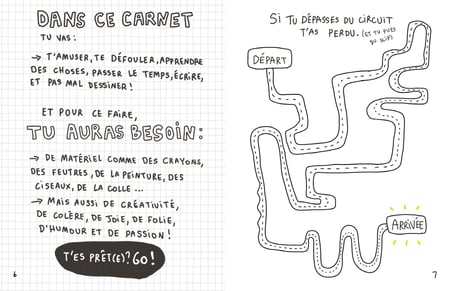 DANS CE CARNET
TU VAS :
→ T'AMUSER, TE DÉFOULER, APPRENDRE
DES CHOSES, PASSER LE TEMPS, ÉCRIRE,
ET PAS MAL DESSINER !
ET POUR CE FAIRE,
TU AURAS BESOIN :
→ DE MATÉRIEL COMME DES CRAYONS,
DES FEUTRES, DE LA PEINTURE, DES
CISEAUX, DE LA COLLE ...
→ MAIS AUSSI DE CRÉATIVITÉ,
DE COLÈRE, DE JOIE, DE FOLIE,
D'HUMOUR ET DE PASSION !
T'ES PRÊT(E) ? GO !
6
SI TU DÉPASSES DU CIRCUIT
T'AS PERDU. (ET TU PUES
DU SLIP)
DÉPART
ARRIVÉE
7